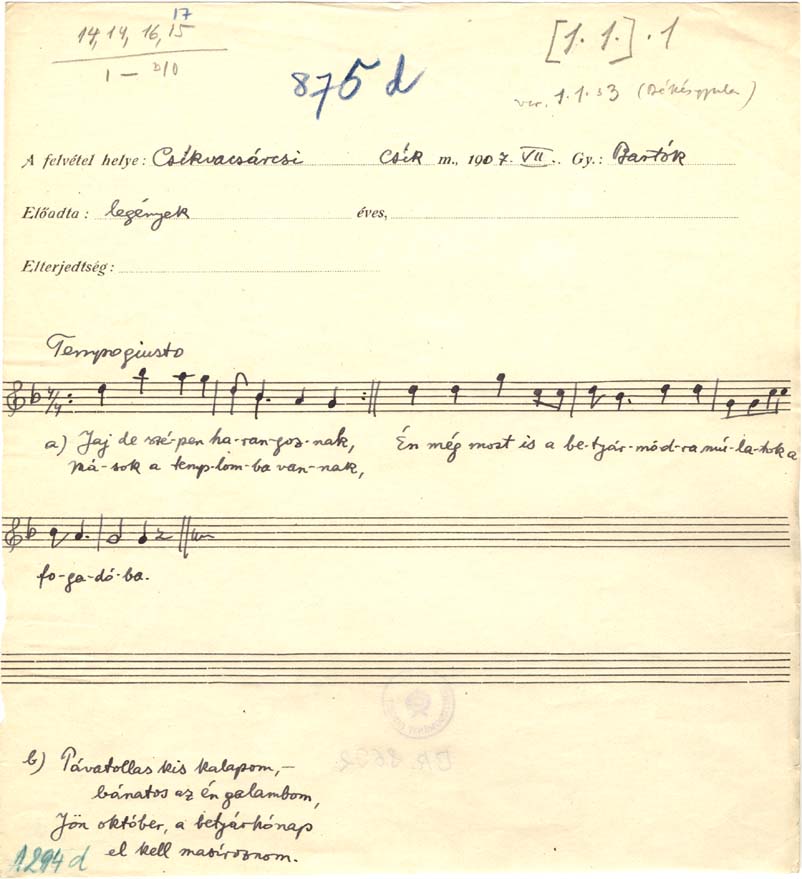 17
14, 14, 16, 15
1 —
[1. 1.] . 1
875 d
var. 1. 1. 33 (Békésgyula)
A felvétel helye: Csíkvacsárcsi Csík m., 1907. VII. Gy.: Bartók
Előadta: legények éves,
Elterjedtség:
Tempo giusto
4/4
a) Jaj de szé-pen ha-ran-goz-nak, Én még most is a be-tjár-mód-ra mú-la-tok a
Má-sok a temp-lom-ba van-nak,
fo-ga-dó-ba.
b) Pávatollas kis kalapom,—
bánatos az én galambom,
Jön október, a betjárhónap
el kell masíroznom.
1.294 d